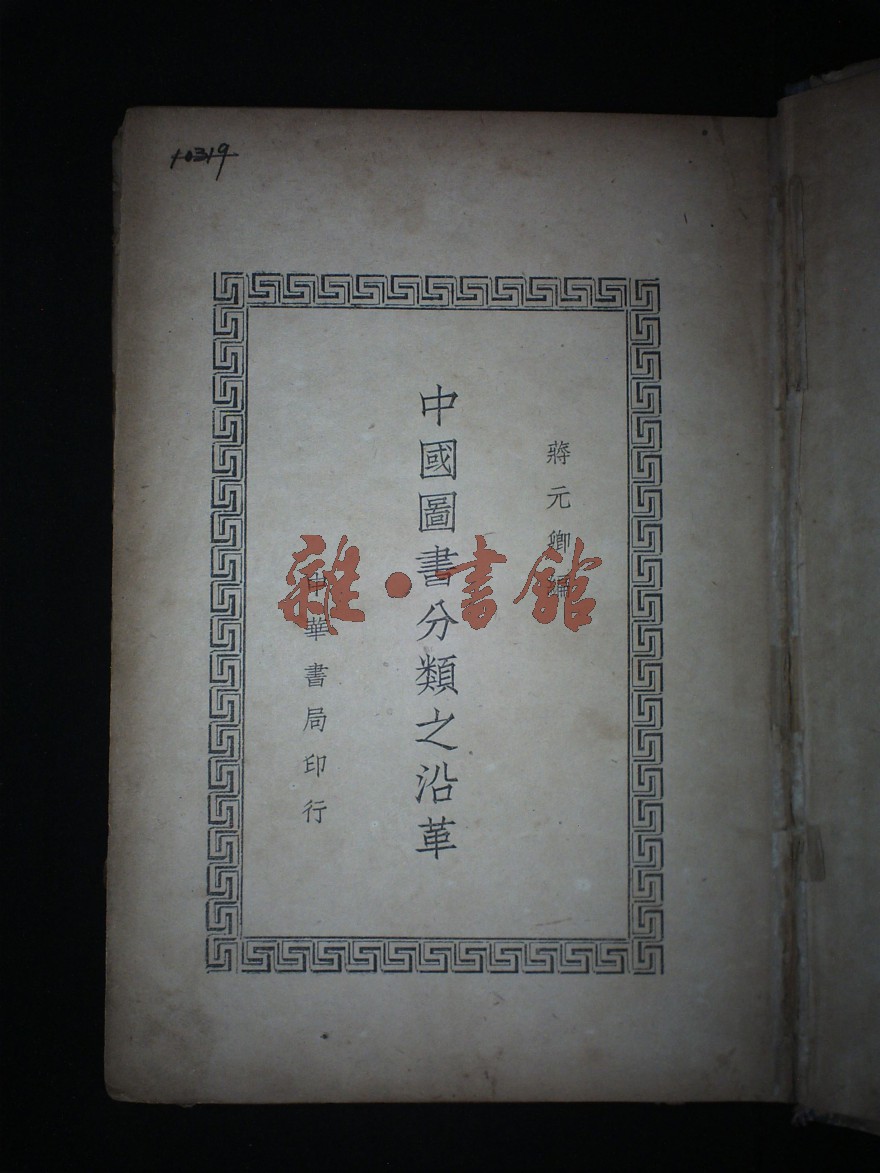 10319
蔣元卿編
中國圖書分類之沿革
中華書局印行
雜·書館